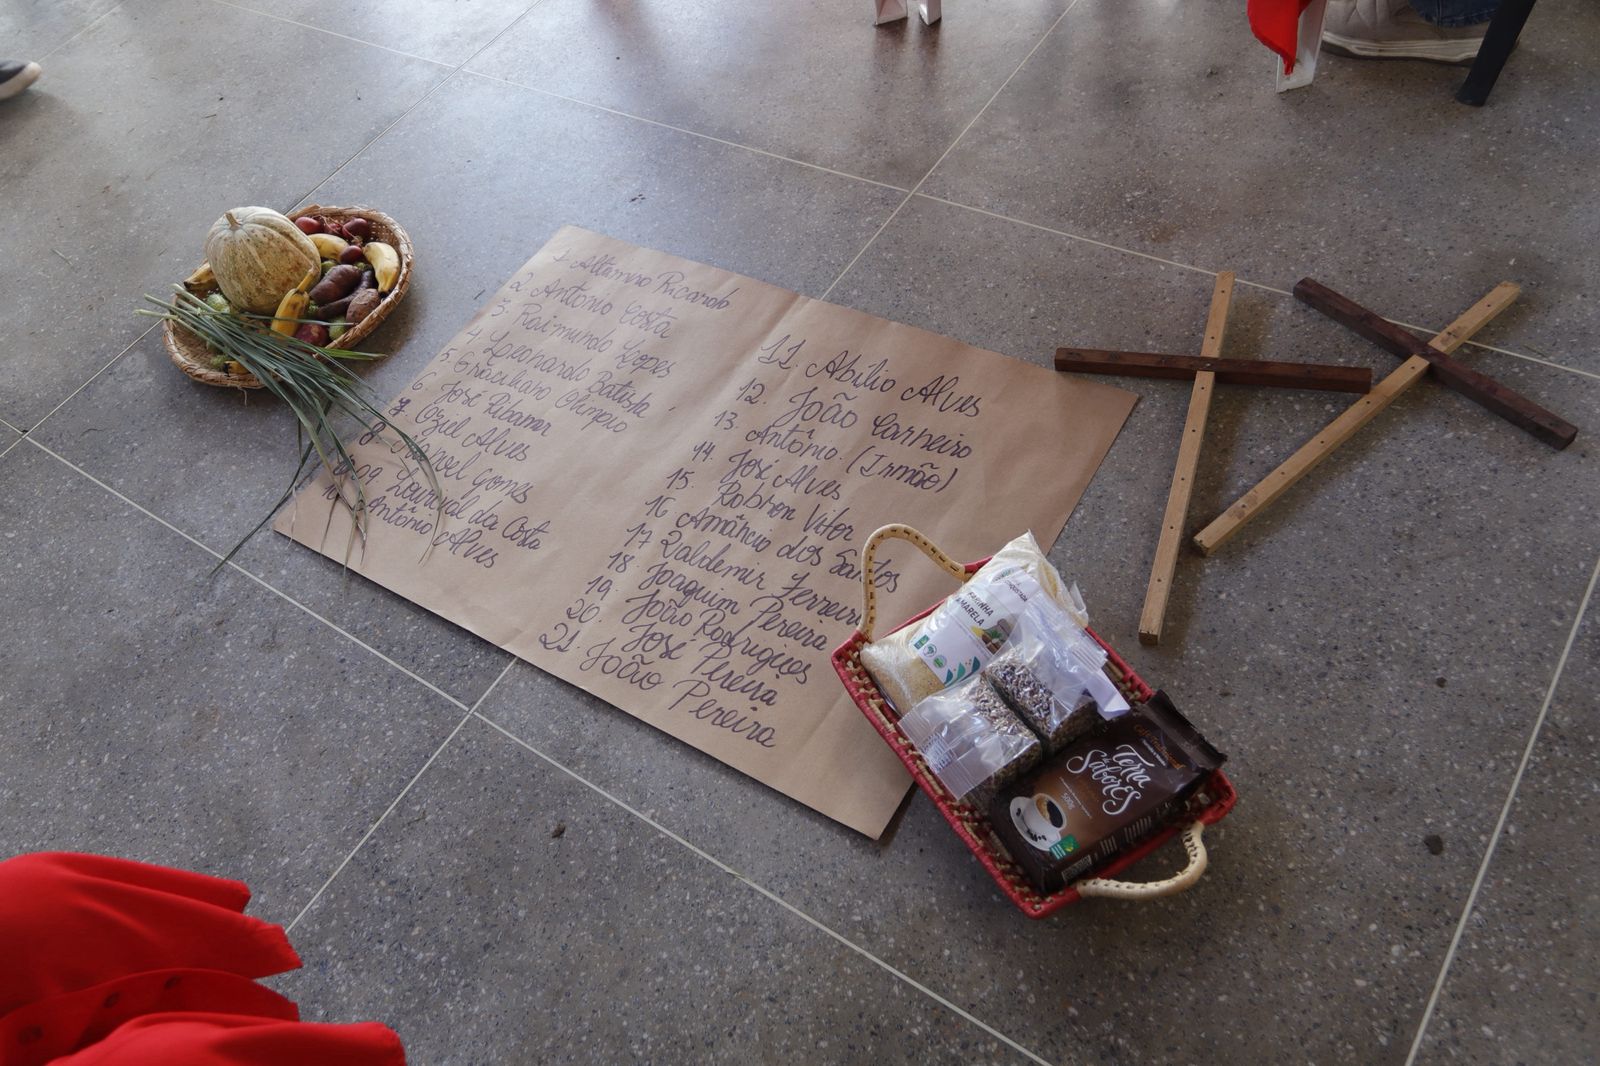 1 Altamiro Ricardo
2. Antonio Costa
3. Raimundo Lopes
4 Leonardo Batista
5 Graciliano Olimpio
6. José Ribamar
7. Oziel Alves
8 Manoel Gomes
9 Lourival da Costa
10 Antônio Alves
11. Abílio Alves
12. João Carneiro
13. Antônio. (Irmão)
14. José Alves
15. Robson Vitor
16 Amâncio dos Santos
17 Valdemir Ferreira
18. Joaquim Pereira
19. João Rodrigues
20. José Pereira
21. João Pereira
FARINHA
AMARELA
Terra
de
Sabores
500g